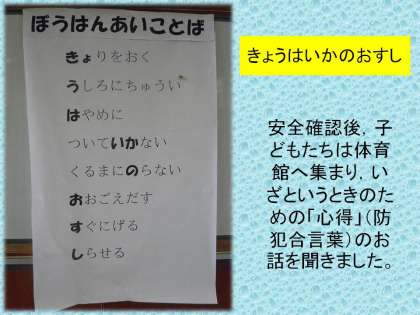 ぼうはんあいことば
きょりをおく
うしろにちゅうい
はやめに
ついていかない
くるまにのらない
おおごえだす
すぐにげる
しらせる
きょうはいかのおすし
安全確認後，子
どもたちは体育
館へ集まり，い
ざというときのた
めの「心得」（防
犯合言葉）のお
話を聞きました。